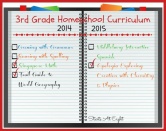 3rd Grade Homeschool Curriculum
2014 2015
Growing with Grammar
Soaring with Spelling
Singapore Math
Trail Guide to
World Geography
Middlebury Interactive
Spanish
Apologia Exploring
Creation with Chemistry
& Physics